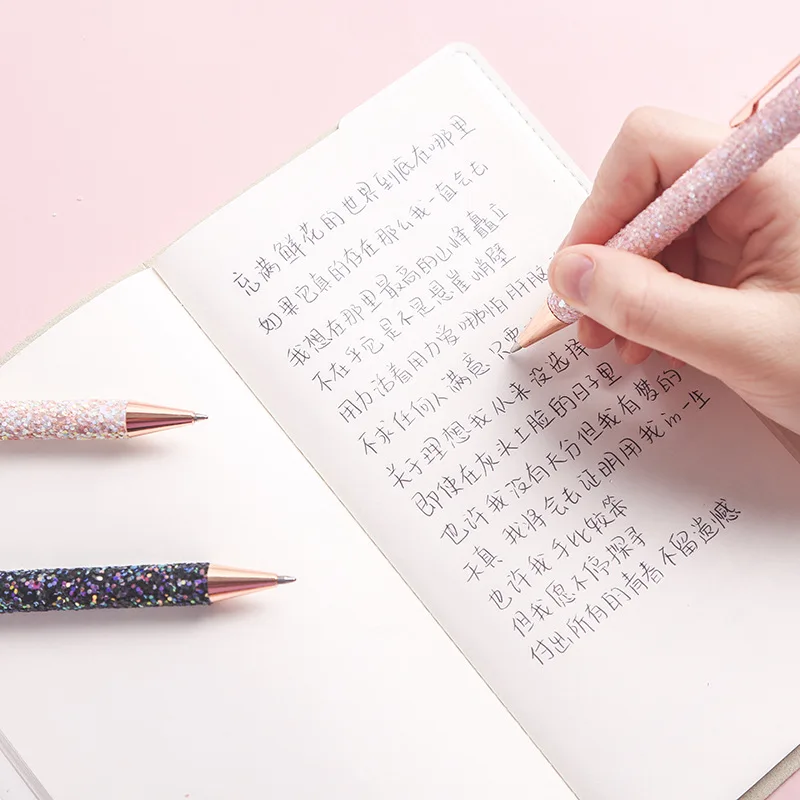 充满鲜花的世界到底在哪里
如果它真的存在那么我一直会去
我想在那里最高的山峰矗立
不在乎它是不是悬崖峭壁
用力活着用力爱哪怕肝脑
不求任何人满意 只要
关于理想我从来没选择
即使在灰头土脸的日子里
也许我没有天分但我有梦的
天真 我将会去证明用我的一生
也许我手比较笨
但我愿不停探寻
付出所有的青春不留遗憾